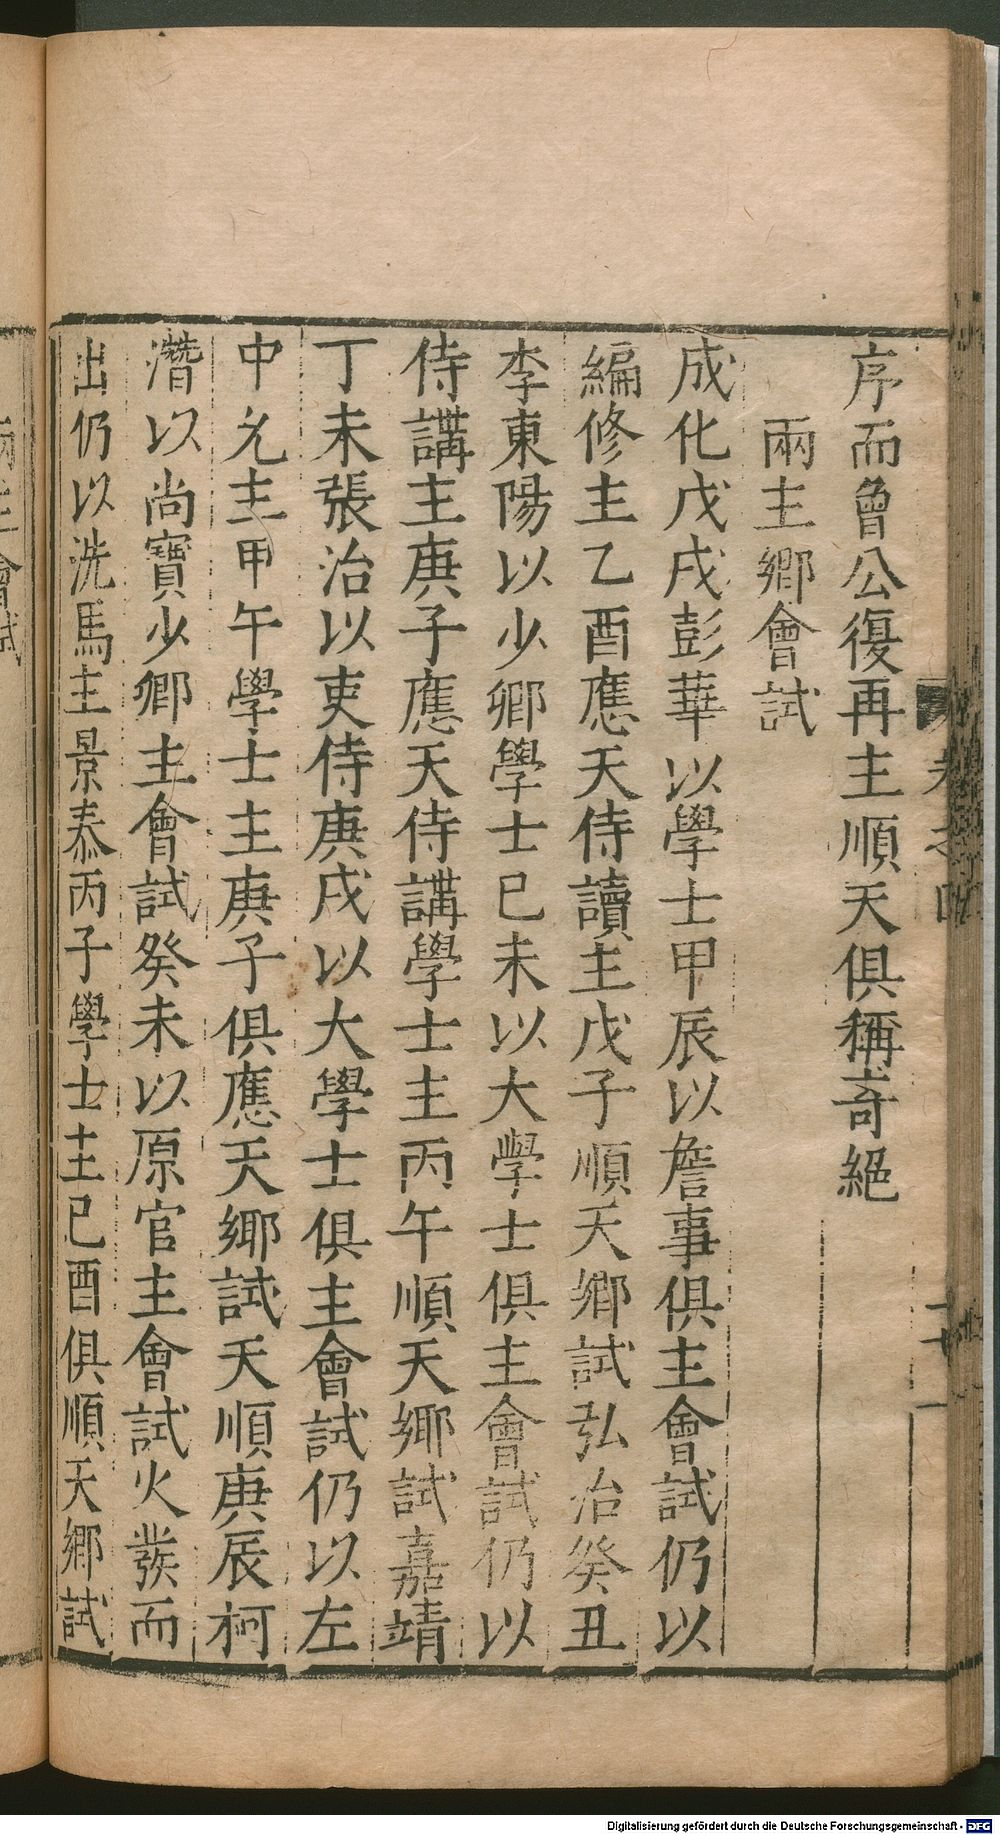 序而曾公復再主順天俱稱奇絕
兩主鄉會試
成化戊戌彭華以學士甲辰以詹事俱主會試仍以
編修主乙酉應天侍讀主戊子順天鄉試弘治癸丑
李東陽以少卿學士已未以大學士俱主會試仍以
侍講主庚子應天侍講學士主丙午順天鄉試嘉靖
丁未張治以吏侍庚戌以大學士俱主會試仍以左
中允主甲午學士主庚子俱應天鄉試天順庚辰柯
潛以尚寶少卿主會試癸未以原官主會試火發而
出仍以洗馬主景泰丙子學士主已酉俱順天鄉試
卷之四
Digitalisierung gefördert durch die Deutsche Forschungsgemeinschaft - DFG